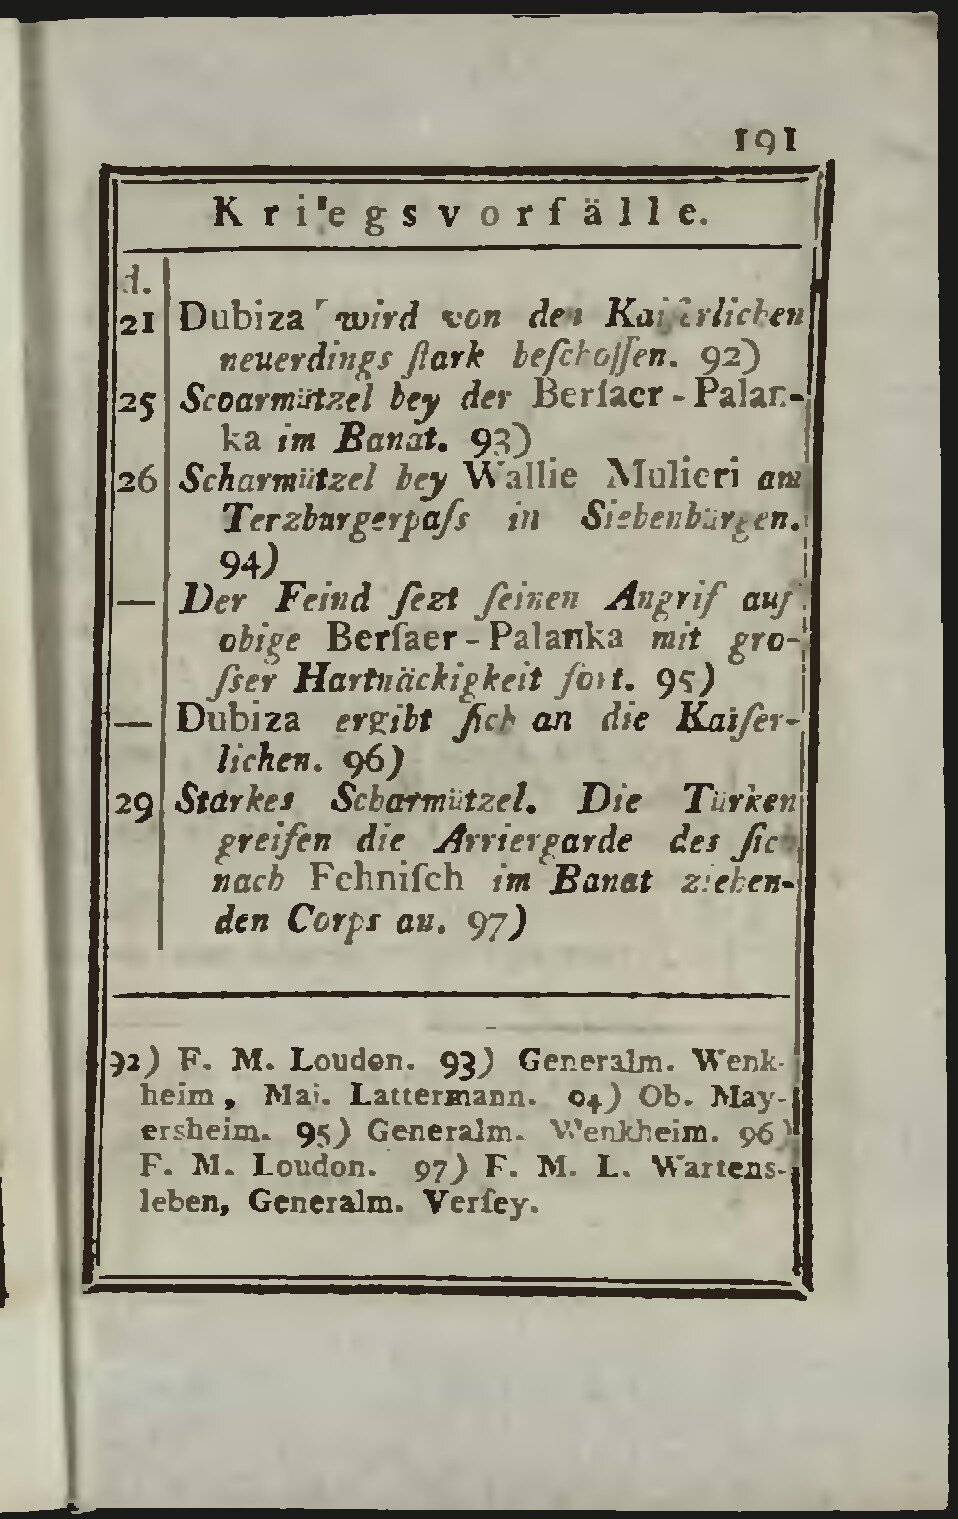 191
Kriegsvorfälle.
d.
21 Dubiza wird von den Kaiſerlichen
neuerdings ſtark beſchoſſen. 92)
25 Scoarmützel bey der Berſaer-Palan-
ka im Banat. 93)
26 Scharmützel bey Wallie Mulieri am
Terzburgerpaſs in Siebenbürgen.
94)
— Der Feind ſezt ſeinen Angrif auf
obige Berſaer-Palanka mit gro-
ſser Hartnäckigkeit fort. 95)
— Dubiza ergibt ſich an die Kaiſer-
lichen. 96)
29 Starkes Scharmützel. Die Türken
greifen die Arriergarde des ſich
nach Fehniſch im Banat ziehen-
den Corps an. 97)
92) F. M. Loudon. 93) Generalm. Wenk-
heim, Mai. Lattermann. 94) Ob. May-
ersheim. 95) Generalm. Wenkheim. 96)
F. M. Loudon. 97) F. M. L. Wartens-
leben, Generalm. Verſey.